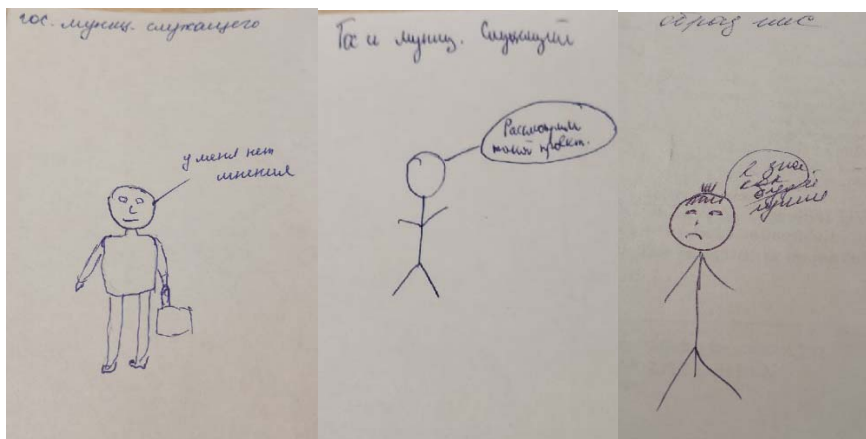 гос. муниц. служащего
у меня нет
мнения
Гос и муниц. Служащий
Рассмотрим
проект.
образ
я знаю
как
лучше